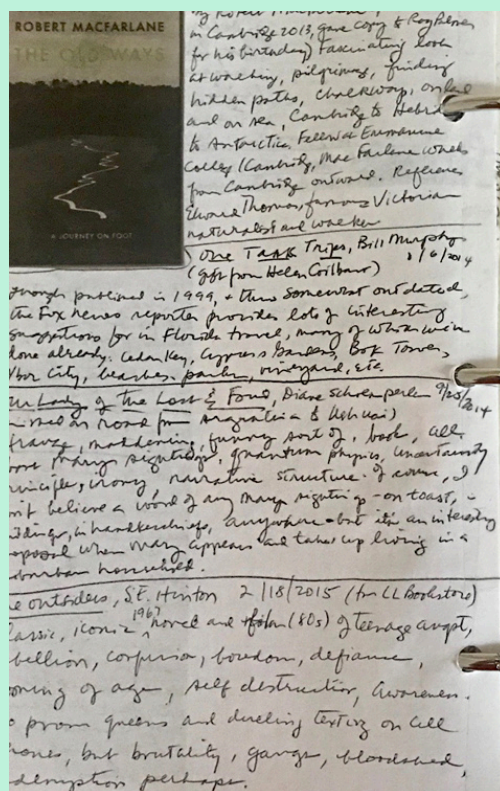 ROBERT MACFARLANE
THE OLD WAYS
A JOURNEY ON FOOT
by Robert
in Cambridge 2013, gave copy to Roy
for his birthday) Fascinating look
at walking, pilgrimage, finding
hidden paths, chalkways, on land
and on sea, Cambridge to Hebrid
to Antarctica. Fellow at Emmanuel
College (Cambridge, MacFarlane walks
from Cambridge outward. References
Edward Thomas, famous Victorian
naturalist and walker
One Tank Trips, Bill Murphy
(gift from Helen 6/2014
though published in 1999, & thus somewhat outdated,
the Fox news reporter provides lots of interesting
suggestions for in Florida travel, many of which we've
done already. Cedar Key, Cypress Gardens, Bok Tower,
Ybor City, beaches, parks, vineyard, etc.
Our Lady of the Lost & Found, Diane Schoemperlen 9/25/2014
read on road from Argentina & Ushuaia)
maddening, funny sort of, book, all
about Mary sightings, quantum physics, uncertainty
principle, irony narrative structure. Of course, I
don't believe a word of any Mary sightings - on toast, in
buildings, in handkerchiefs, anywhere - but it's an interesting
proposal when Mary appears and takes up living in a
suburban household.
The Outsiders, S.E. Hinton 2/18/2015 (from LL Bookstore)
Classic, iconic 1967 novel and film (80s) of teenage angst,
rebellion, confusion, boredom, defiance,
coming of age, self destruction, awareness.
No prom queens and dueling texting on cell
phones, but brutality, gangs, bloodshed,
redemption perhaps.